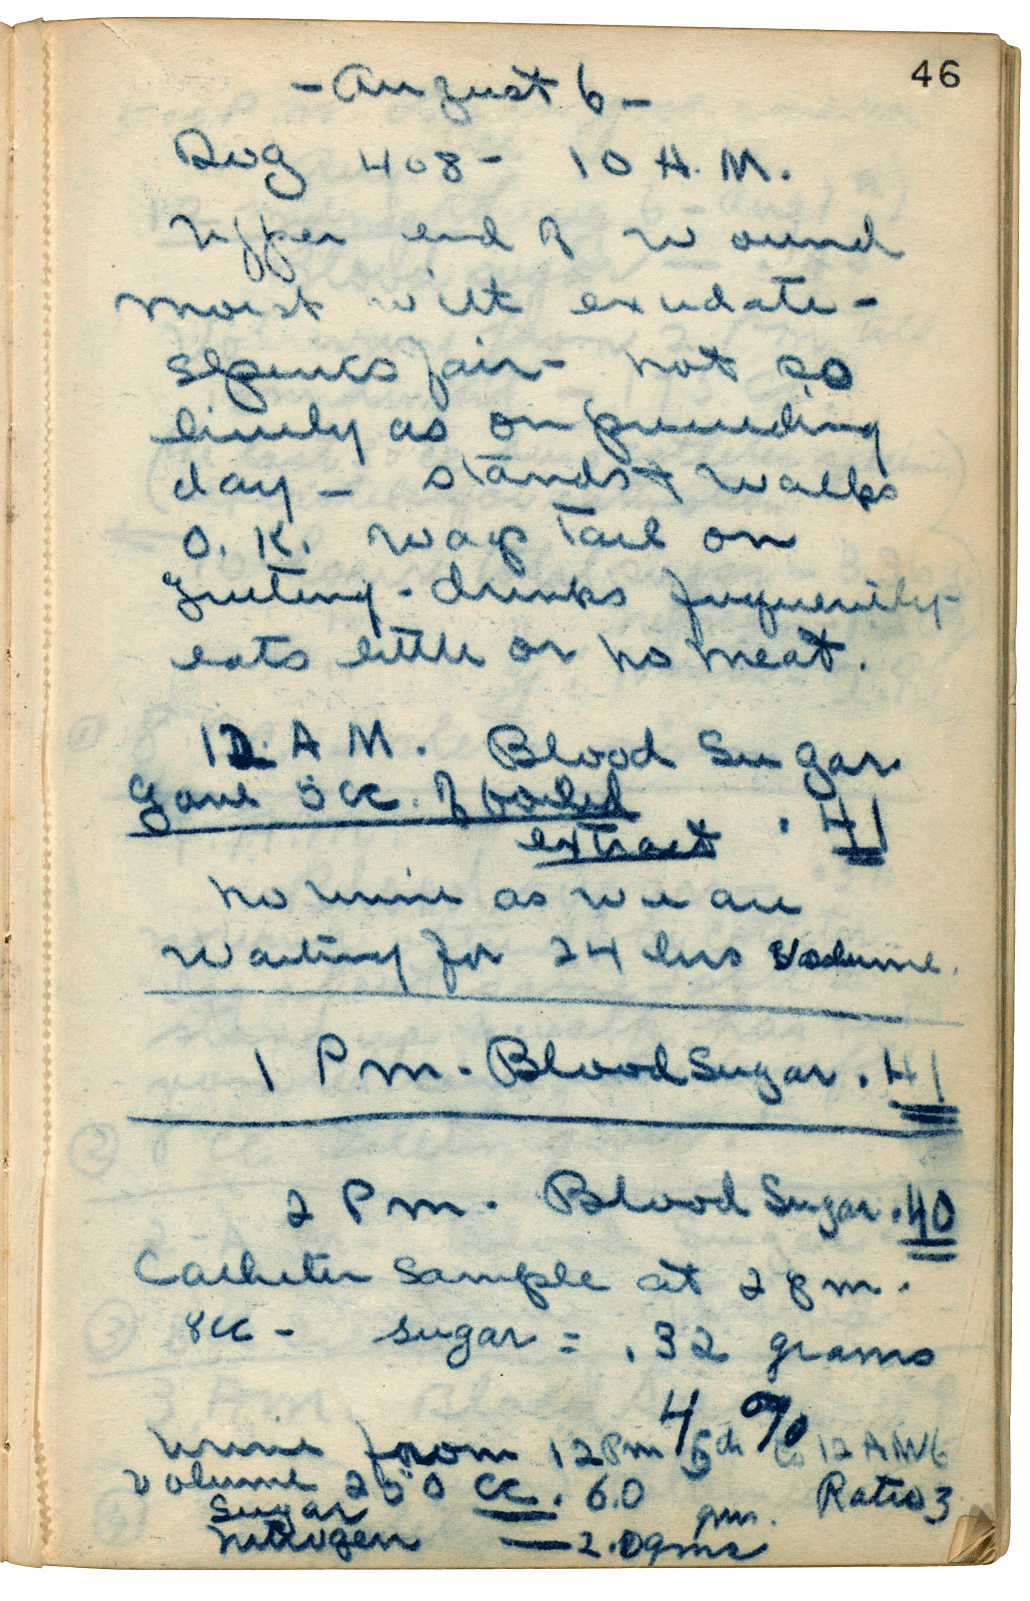 46
- August 6 -
Dog 408 - 10 A.M.
Upper end of wound
moist with exudate -
spirits fair - not so
lively as on preceeding
day - stands + walks
O.K. wags tail on
greeting - drinks frequently -
eats little or no meat.
12. A M. Blood Sugar
Gave 5 cc. of boiled .41
extract
no urine as we are
waiting for 24 hrs volume.
1 P m. Blood Sugar .41
2 P m. Blood Sugar .40
Catheter Sample at 2 p m.
8cc - sugar = .32 grams
4 %
Urine from 12 Pm 5th to 12 AM 6
Volume 250 cc. 6.0 Ratio 3
Sugar gm.
Nitrogen — 2.0 gms